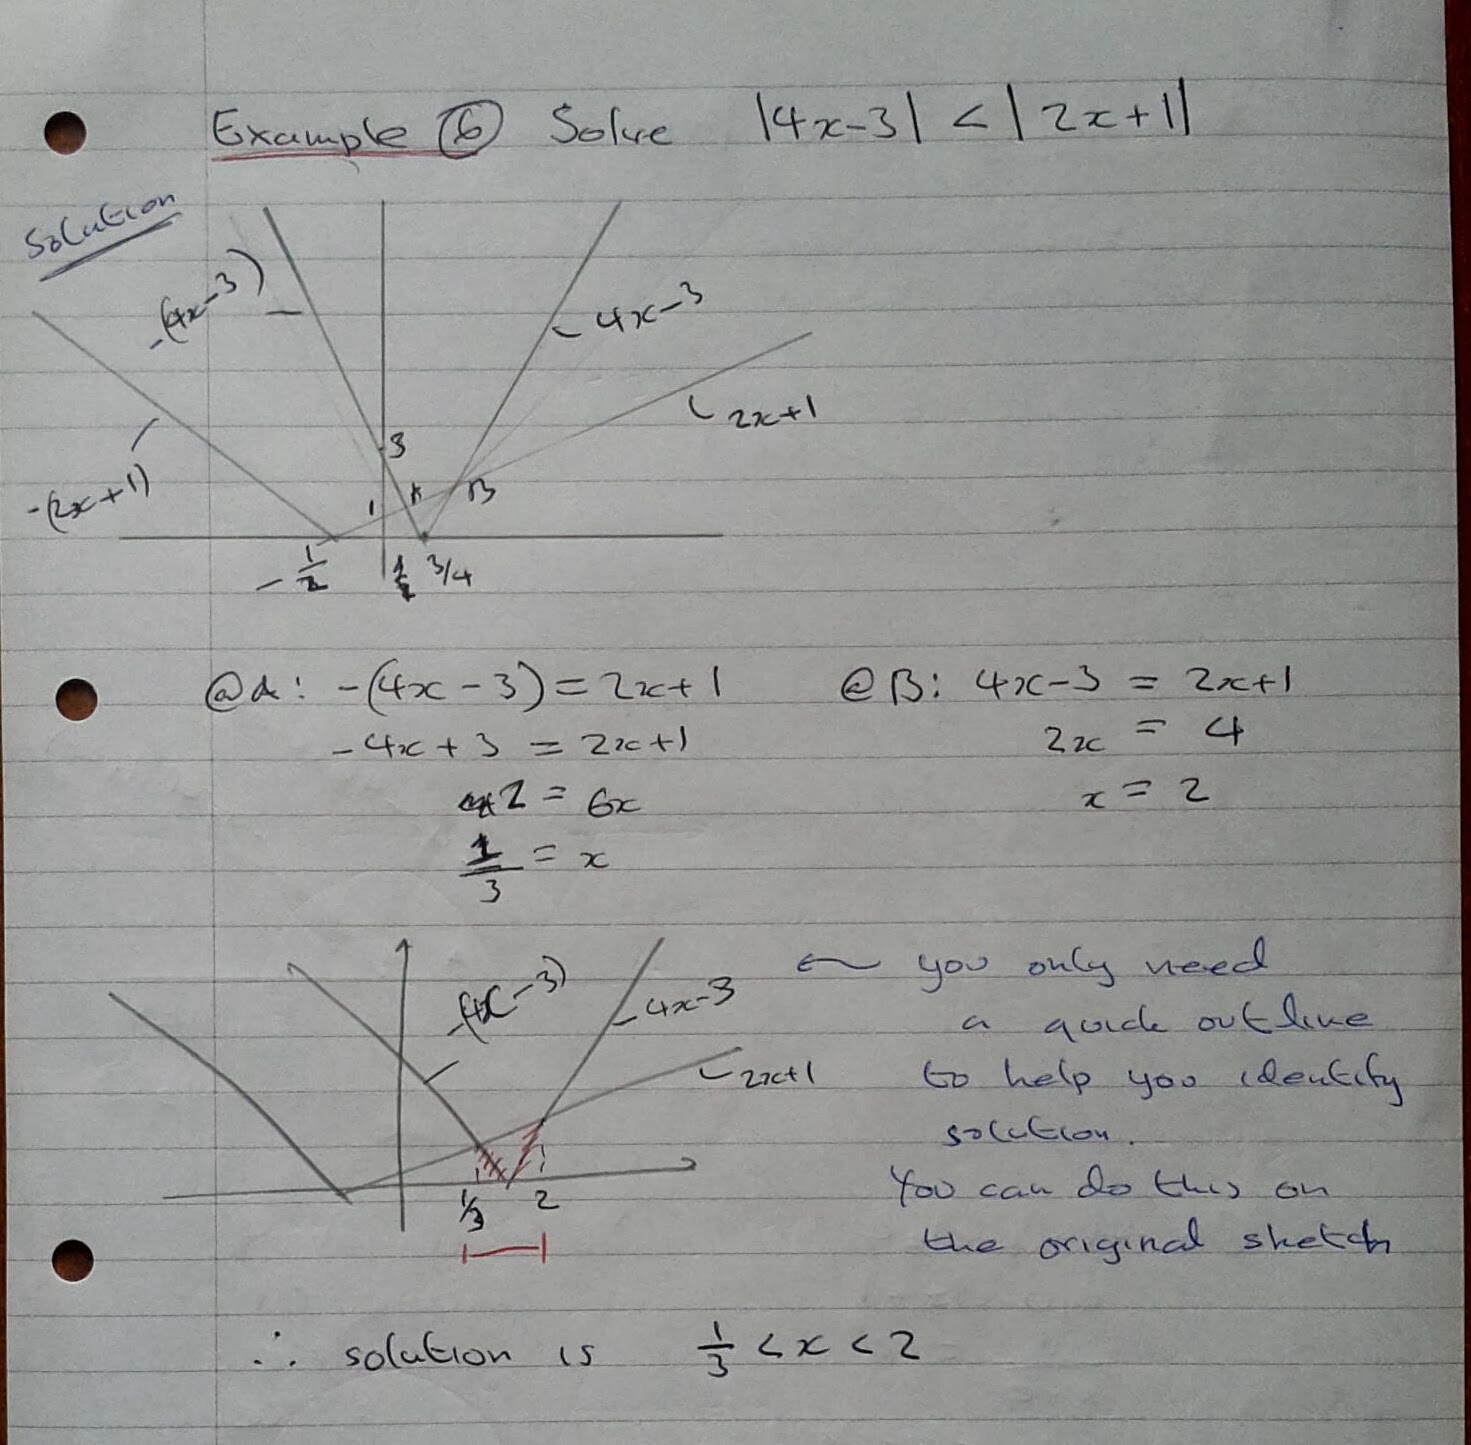 Example 6 Solve |4x-3| < |2x+1|
Solution
-(4x-3)
4x-3
2x+1
-(2x+1)
3
1
A
B
-1/2
3/4
@A: -(4x-3) = 2x+1
-4x+3 = 2x+1
2 = 6x
1/3 = x
@B: 4x-3 = 2x+1
2x = 4
x = 2
-(4x-3)
4x-3
2x+1
1/3
2
you only need
a quick outline
to help you identify
solution.
You can do this on
the original sketch
∴ solution is 1/3 < x < 2